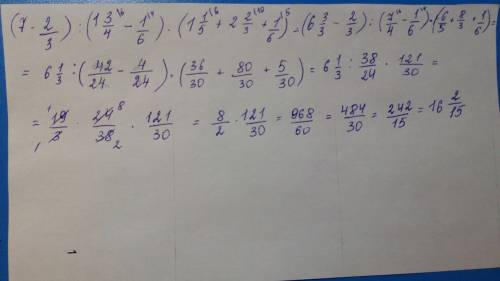 (7 - 2/3) : (1 3/4 \6 - 1/6 \4) · (1 1/5 \6 + 2 2/3 \10 + 1/6 \5) = (6 3/3 - 2/3) : (7/4 - 1/6) · (6/5 + 8/3 + 1/6) =
= 6 1/3 : (42/24 - 4/24) · (36/30 + 80/30 + 5/30) = 6 1/3 : 38/24 · 121/30 =
= 19/3 · 24/38 · 121/30 = 8/2 · 121/30 = 968/60 = 484/30 = 242/15 = 16 2/15